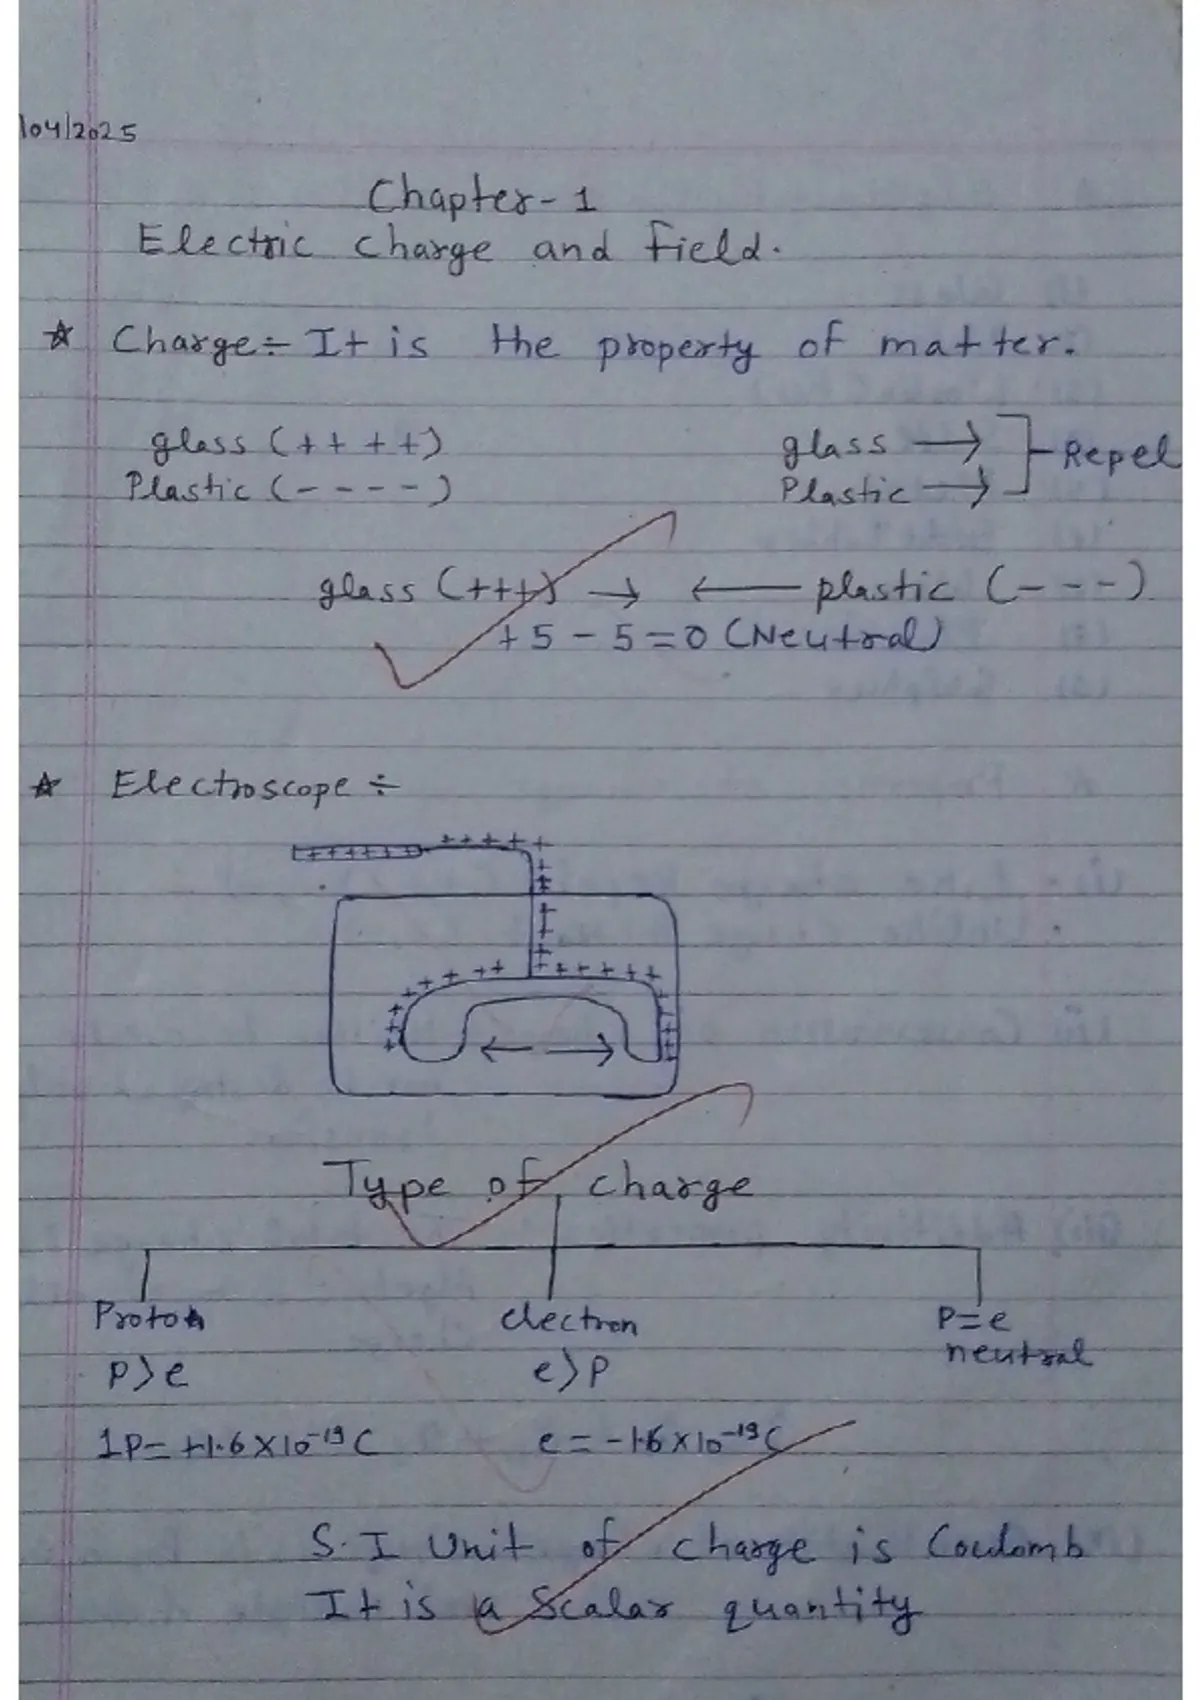 /04/2025
Chapter-1
Electric charge and field.
☆ Charge÷ It is the property of matter.
glass (++++) glass → Repel
Plastic (----) Plastic →
glass (+++) → ← plastic (---)
+5 - 5 = 0 (Neutral)
☆ Electroscope ÷
+++++++ ++++++
Type of charge
Proton electron P=e
neutral
P>e e>P
1P= +1.6×10⁻¹⁹ C e = -1.6×10⁻¹⁹ C
S.I Unit of charge is Coulomb
It is a Scalar quantity